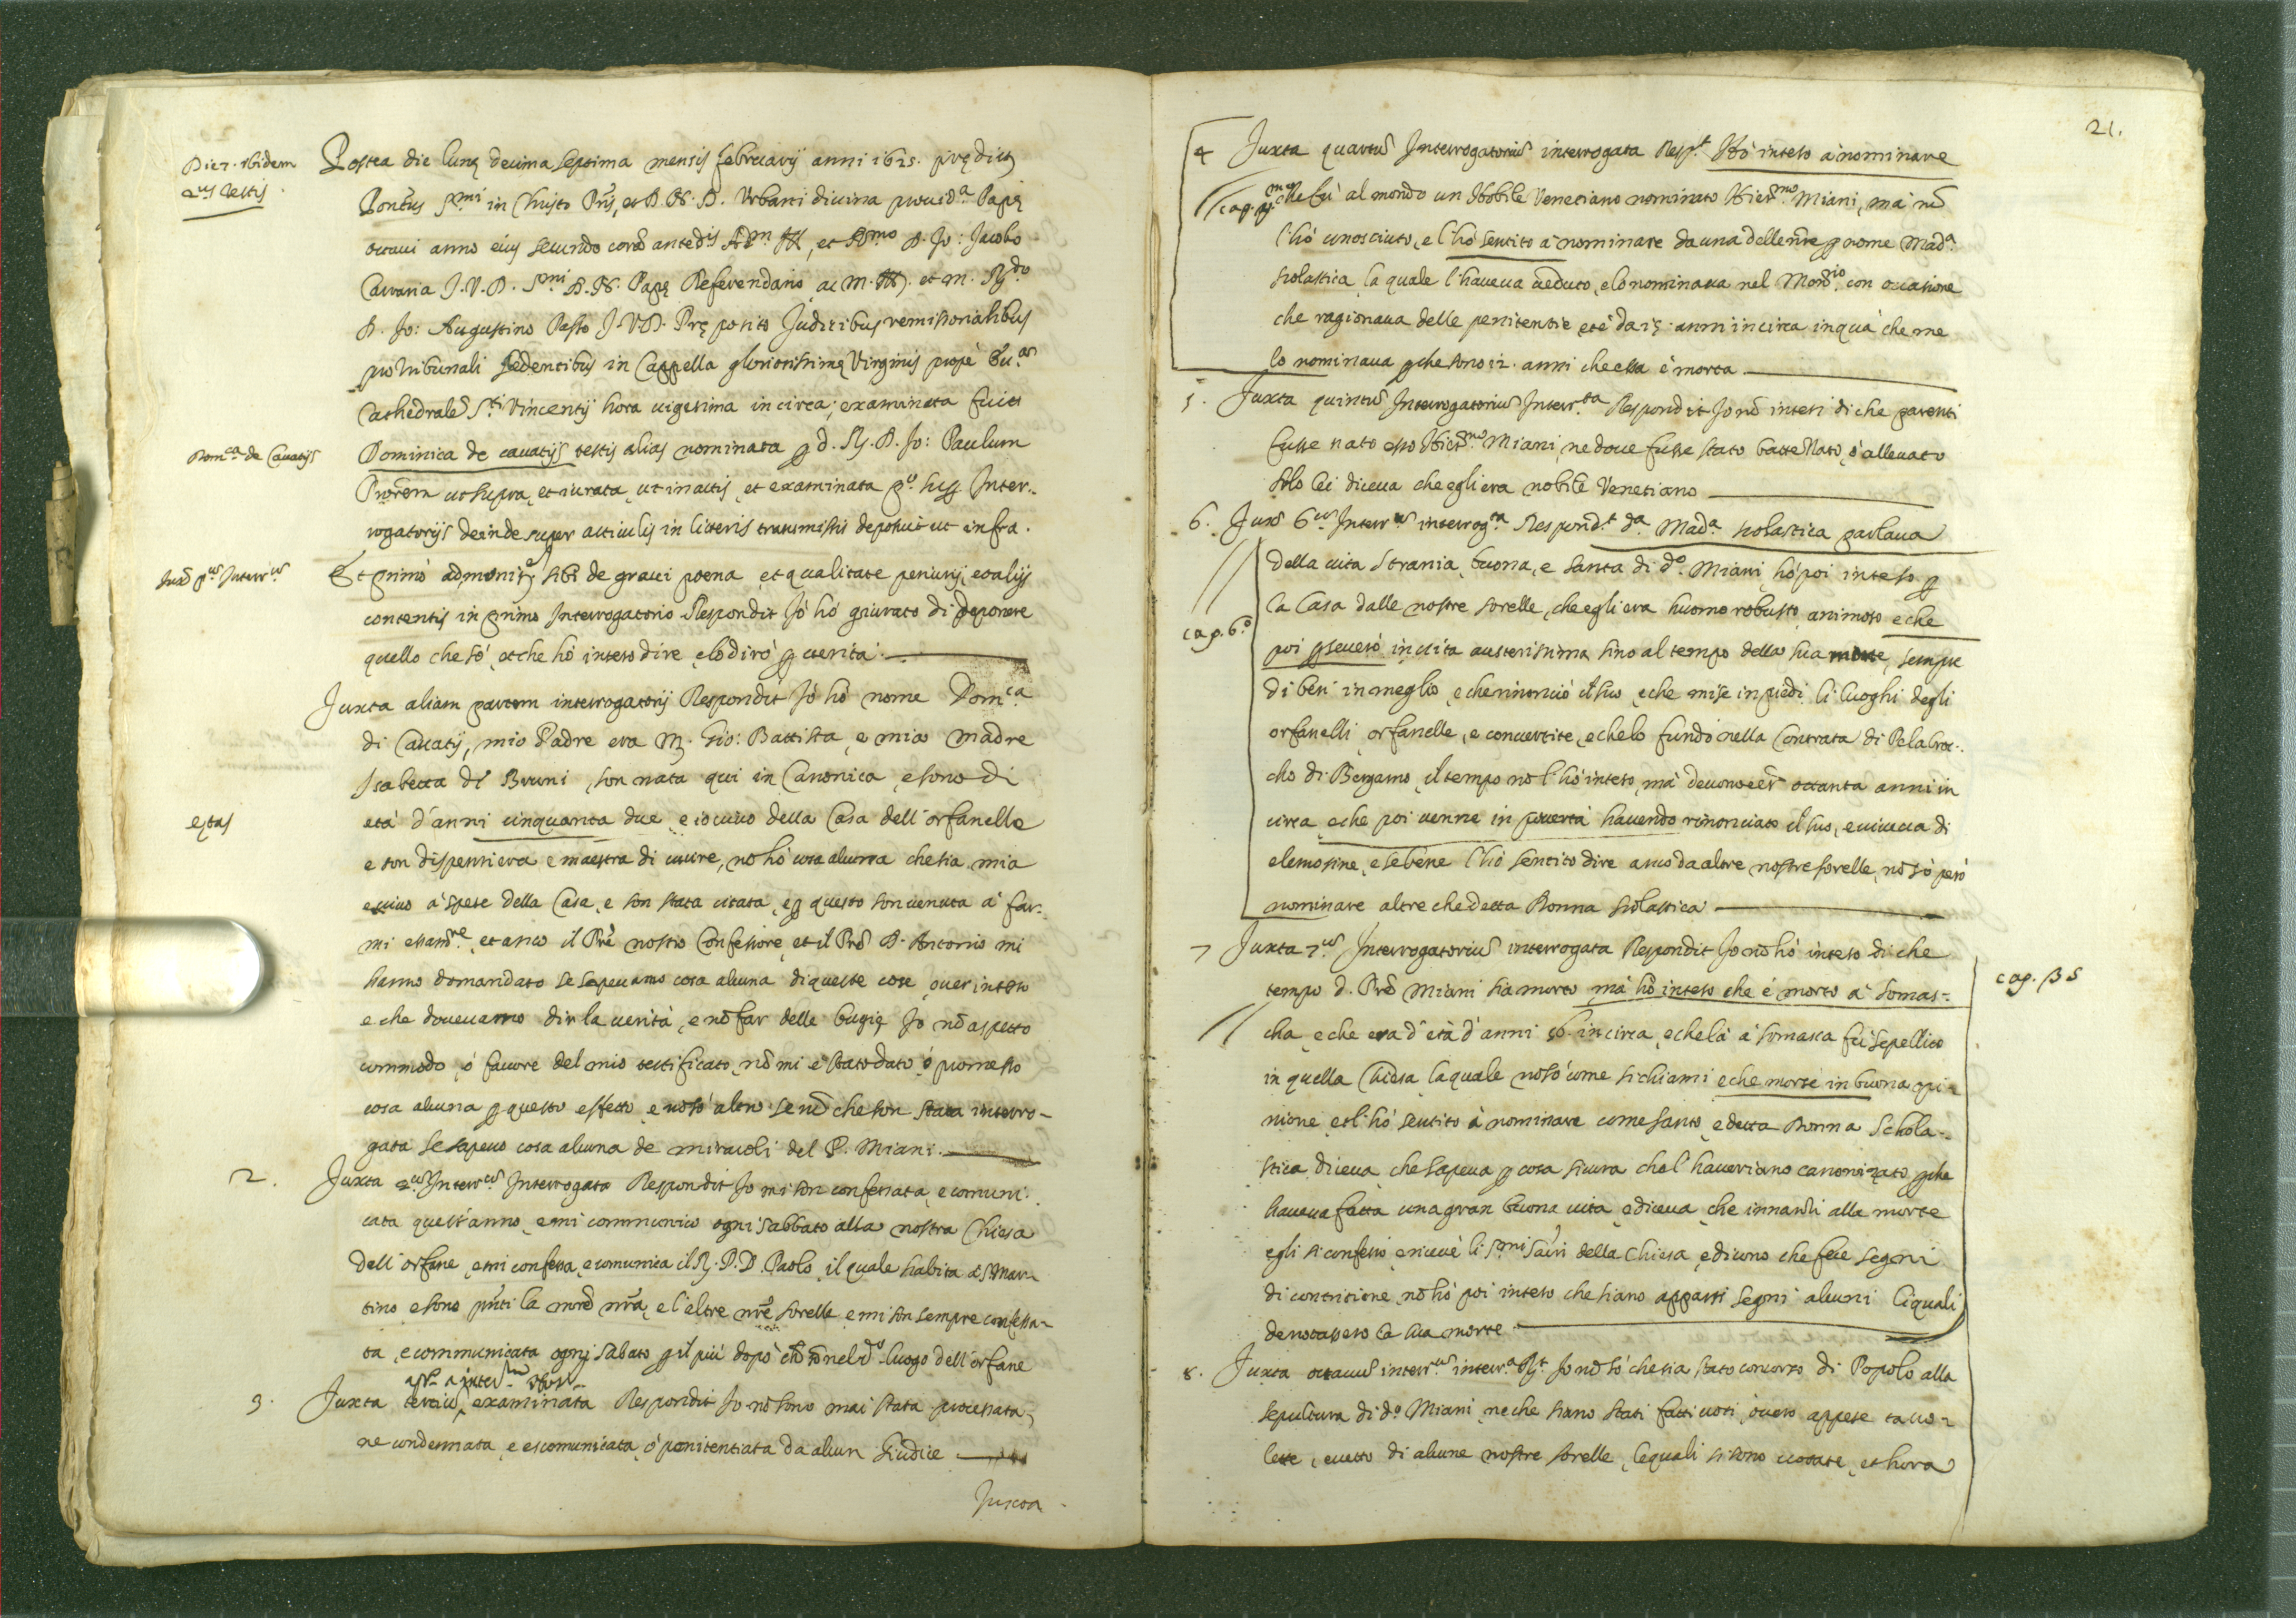 Die 7. ibidem
2us testis.
Postea die lunę decima septima mensis februarij anni 1625. prędicti
Pontus Smi in Christo Pris, et D. N. D. Urbani divina provida Papę
octavi anno eius secundo corā antedis Adm et Rmo D. Jo: Jacobo
J.V.D. Smi D. N. Papę Referendario ac M. et M. Rdo
D. Jo: Augustino Pasto J.V.D. Pręposito Judicibus remissorialibus
pro tribunali sedentibus in Cappella gloriosissimę Virginis propè
Cathedralē Sti Vincentij hora vigesima in circa; examinata fuit
Domca de Cavatijs
Dominica de cavatijs testis alias nominata p d. R. D. Jo: Paulum
Prorem ut supra, et iurata, ut in actis, et examinata po. sup. Inter-
rogatorijs deinde super articulis in literis transmissis deposuit ut infra.
Juxa pus Interrus
Et primò admonita sibi de gravi poena et qualitate periurij, et alijs
contentis in primo Interrogatorio Respondit Iò hò giurato di deponere
quello che sò, et che hò inteso dire, e lo dirò p verità.
Juxta aliam partem interrogatorij Respondit Iò hò nome Domca
di Cavatij, mio Padre era M. Gio: Battista, e mia madre
Isabetta de Bruni, son nata qui in Canonica, e sono di
ętas
età d'anni cinquanta due, e io vivo della Casa dell'orfanelle
e son dispensiera e maestra di cusire, nō hò cosa alcuna che sia mia
e vivo à spese della Casa, e son stata citata, e p questo son venuta à far-
mi essamre, et anco il Prē nostro Confessore, et il Prē D. Antonio mi
hanno domandato se sapevamo cosa alcuna di queste cose, over inteso
e che dovevamo dir la verità, e nō far delle bugie Io nō aspetto
commodo, ò favore del mio testificato, nō mi è stato dato, ò promesso
cosa alcuna p questo effetto, e nō sò altro se nō che son stata interro-
gata se sapevo cosa alcuna de miracoli del P. Miani.
2. Juxta 2us Interrus Interrogata Respondit Io mi son confessata, e comuni-
cata quest'anno, e mi communico ogni sabbato alla nostra Chiesa
dell'orfane, e mi confessa, e comunica il R. P. D. Paolo, il quale habita à S. Mar-
tino e sono pnti la mrē nrā, e l'altre nrē sorelle e mi son sempre confessa-
ta, e communicata ogni sabato p il più dopò chè sō nel do. luogo dell'orfane
3. Juxta tertiū examinata Respondit Io nō sono mai stata processata,
ne condennata, e escomunicata, ò penitentiata da alcun Giudice
Juxta
21.
4 Juxta quartū Interrogatoriū interrogata Respt Hò inteso à nominare
cap.
che fù al mondo un Nobile Venetiano nominato Hiermo Miani, mà nō
l'hò conosciuto, e l'hò sentito à nominare da una delle nrē p nome Mada
scolastica, la quale l'haveva veduto, e lo nominava nel Monrio con occasione
che ragionava delle penitentie et è da 15 anni in circa in quà che me
lo nominava p che sono 12. anni che essa è morta
5. Juxta quintū Interrogatoriū Interrta Respondit Io nō intesi di che parenti
fusse nato esso Hiermo Miani, ne dove fusse stato battezzato, ò allevato
solo lei diceva che egli era nobile Venetiano
6. Juxa 6us Interrus interrogta Respondt da Mada scolastica parlava
della vita strania, buona, e santa di do. Miani, hò poi inteso p
la Casa dalle nostre sorelle, che egli era huomo robusto, animoso e che
cap. 6o
poi pseverò in vita austerissima sino al tempo della sua morte, sempre
di ben in meglio, e che rinonciò il suo, e che mise in piedi li luoghi degli
orfanelli, orfanelle, e convertite, e che lo fundò nella Contrata di Pelabroc-
cho di Bergamo, il tempo nō l'hò inteso, mà devono eēr ottanta anni in
circa, e che poi venne in povertà havendo rinonciato il suo, e viveva di
elemosine, e sebene l'hò sentito dire anco da altre nostre sorelle, nō sò però
nominare altre che detta Donna Scolastica
7 Juxta 7us Interrogatoriū interrogata Respondit Io nō hò inteso di che
tempo d. Prē Miani sia morto mà hò inteso che è morto à Somas-
cap.
cha, e che era d'età d'anni in circa, e che là à Somasca fù sepellito
in quella Chiesa, la quale nō sò come si chiami e che morse in buona opi-
nione, et l'hò sentito à nominare come santo, e detta Donna Schola-
stica diceva che sapeva p cosa sicura che l'haveriano canonizato p che
haveva fatta una gran buona vita, e diceva, che innanzi alla morte
egli si confessò, e ricevè li Smi Sacri della Chiesa, e dicono che fece segni
di contritione, nō hò poi inteso che siano apparsi segni alcuni li quali
denotassero la sua morte
8. Juxta octavū interrus interra Rt Io nō sò che sia stato concorso di Popolo alla
sepoltura di do. Miani, ne che siano stati fatti voti, ò vero appese tavo-
lette, eccetto di alcune nostre sorelle, le quali si sono vodate, et hora